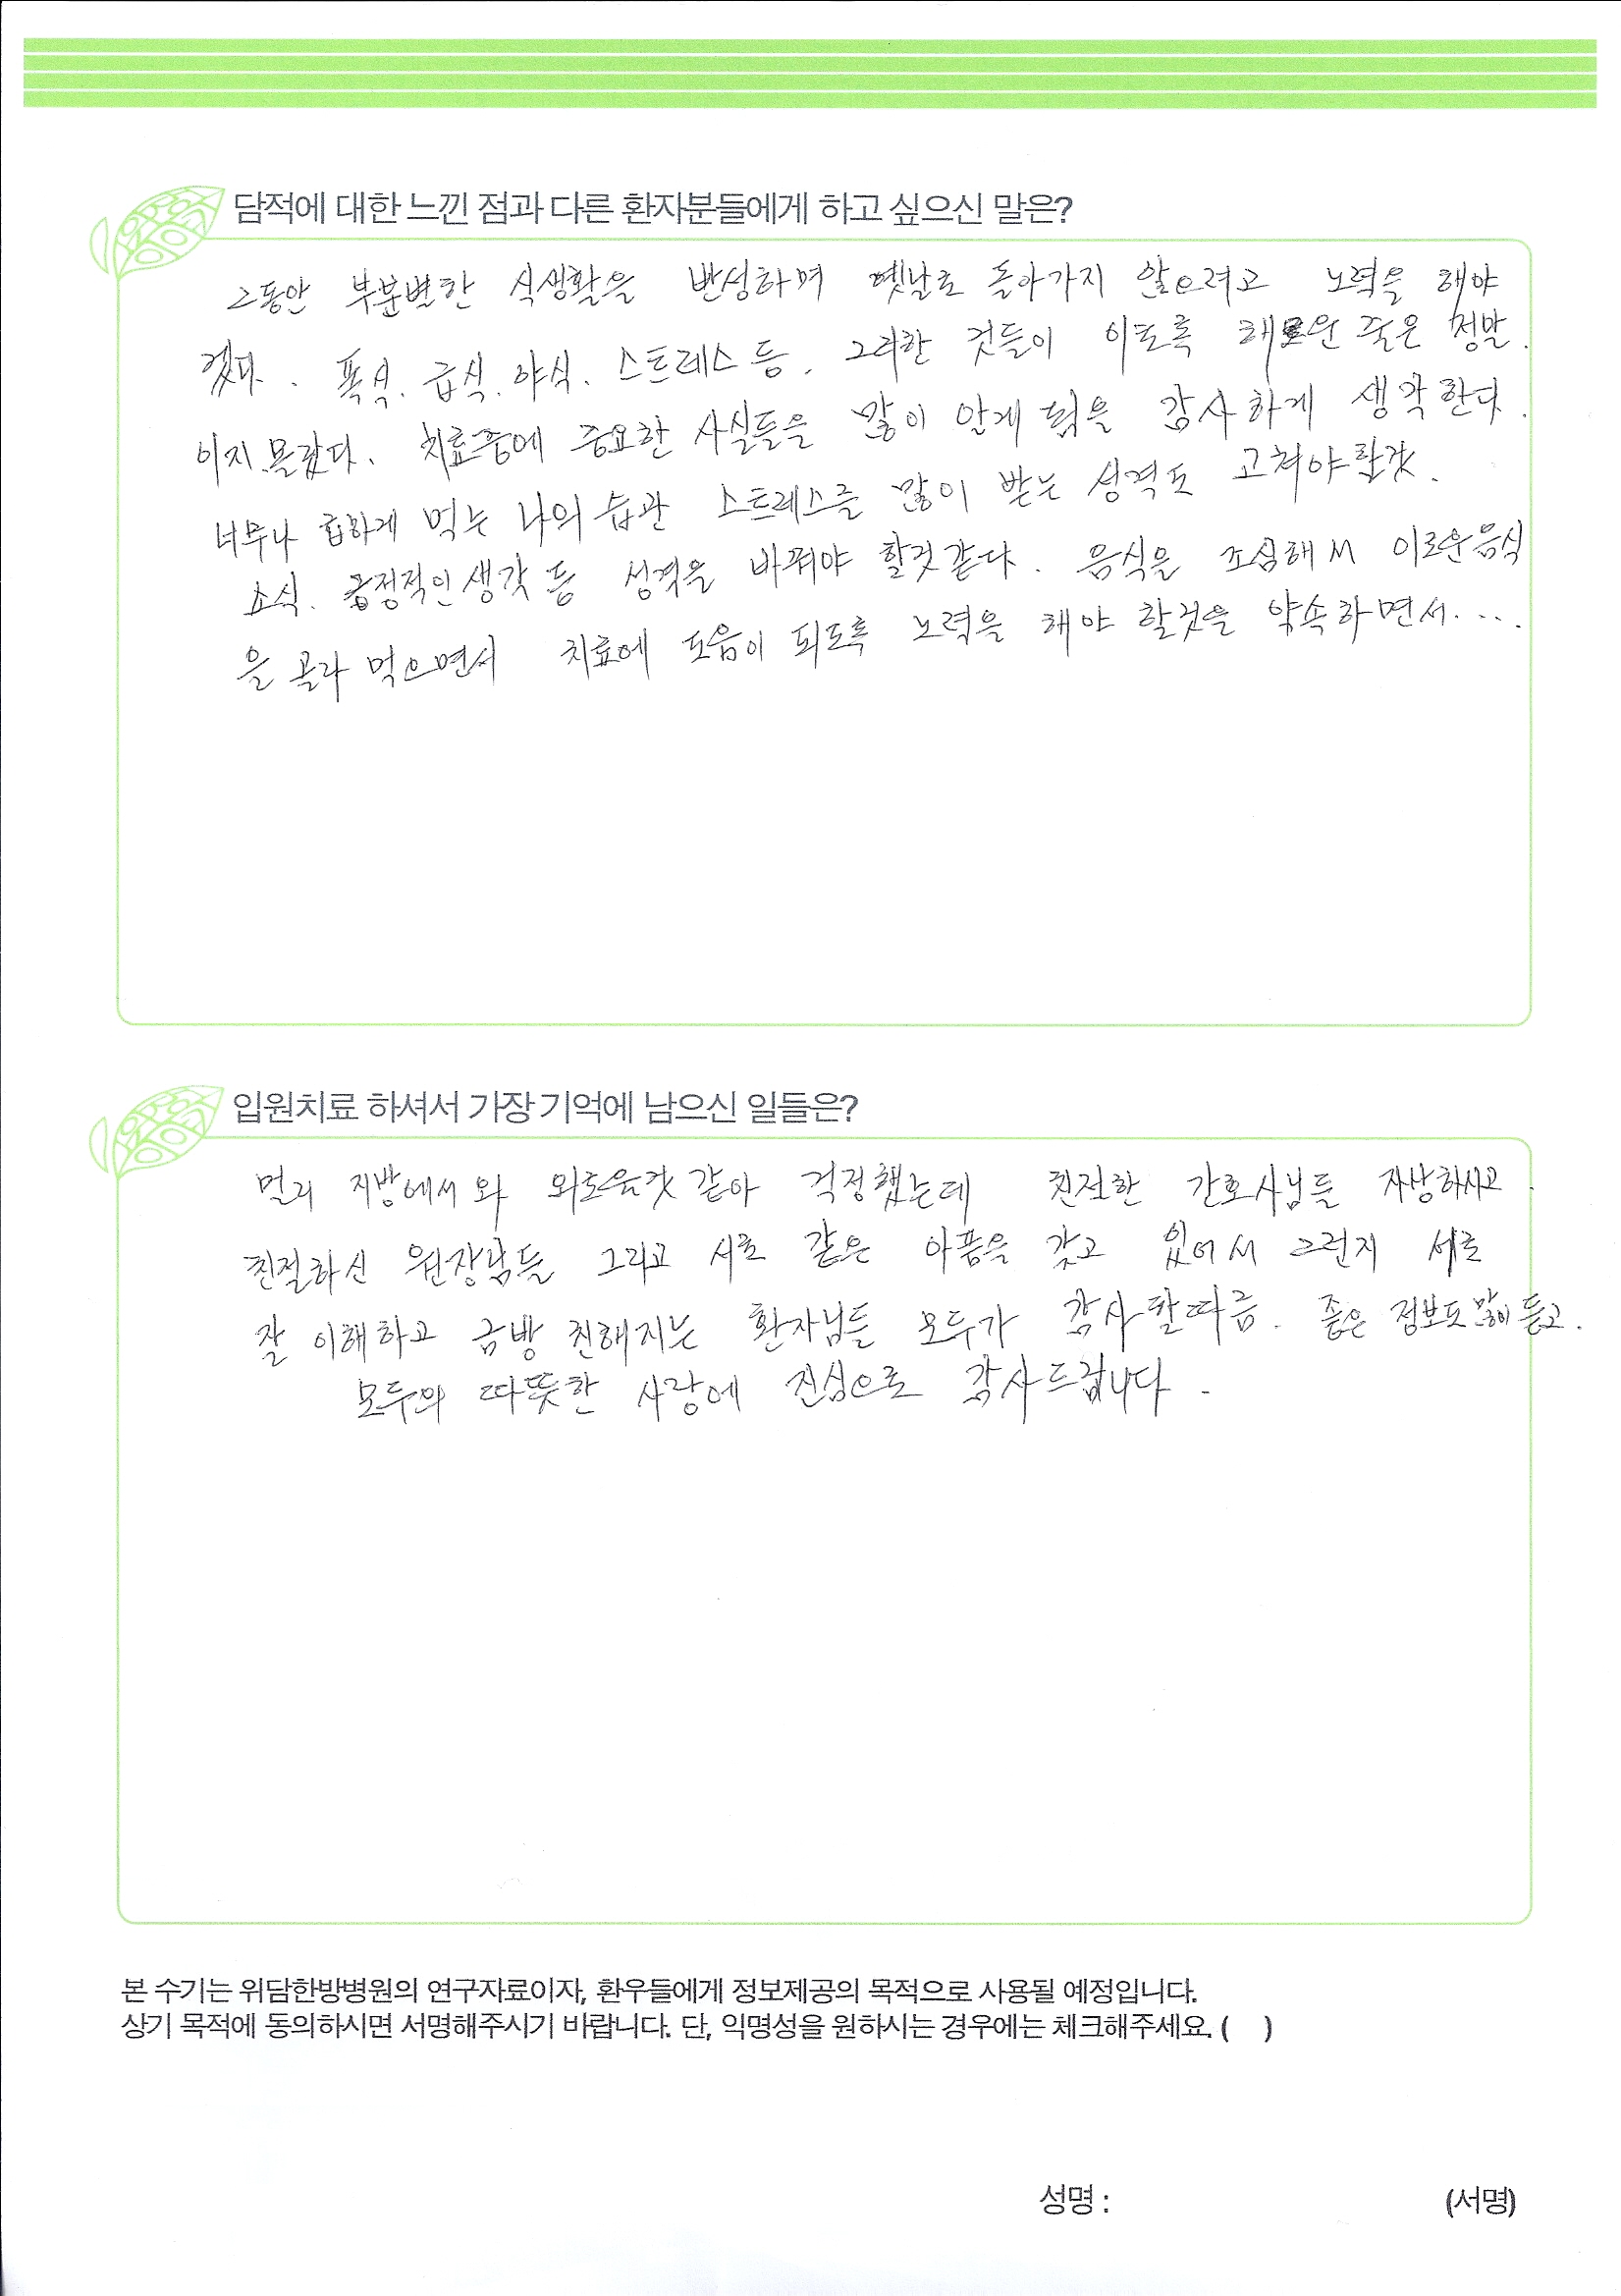 담적에 대한 느낀 점과 다른 환자분들에게 하고 싶으신 말은?
그동안 부분별한 식생활을 반성하며 옛날로 돌아가지 않으려고 노력을 해야
겠다. 폭식. 급식. 야식. 스트레스 등. 그러한 것들이 이토록 해로운 줄은 정말.
이지 몰랐다. 치료중에 중요한 사실들을 많이 알게 됨을 감사하게 생각한다.
너무나 급하게 먹는 나의 습관 스트레스를 많이 받는 성격도 고쳐야 할것.
소식. 긍정적인 생각 등 성격을 바꿔야 할것 같다. 음식을 조심해서 이로운음식
을 골라 먹으면서 치료에 도움이 되도록 노력을 해야 할것을 약속하면서....
입원치료 하셔서 가장 기억에 남으신 일들은?
멀리 지방에서 와 외로울것 같아 걱정했는데 친절한 간호사님들 자상하시고
친절하신 원장님들 그리고 서로 같은 아픔을 갖고 있어서 그런지 서로
잘 이해하고 금방 친해지는 환자님들 모두가 감사할따름. 좋은 정보도 많이 듣고.
모두의 따뜻한 사랑에 진심으로 감사드립니다.
본 수기는 위담한방병원의 연구자료이자, 환우들에게 정보제공의 목적으로 사용될 예정입니다.
상기 목적에 동의하시면 서명해주시기 바랍니다. 단, 익명성을 원하시는 경우에는 체크해주세요. (    )
성명 : (서명)